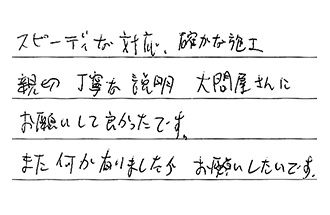 スピーディな対応、確かな施工
親切 丁寧な説明 大問屋さんに
お願いして良かったです。
また何かありましたら お願いしたいです。